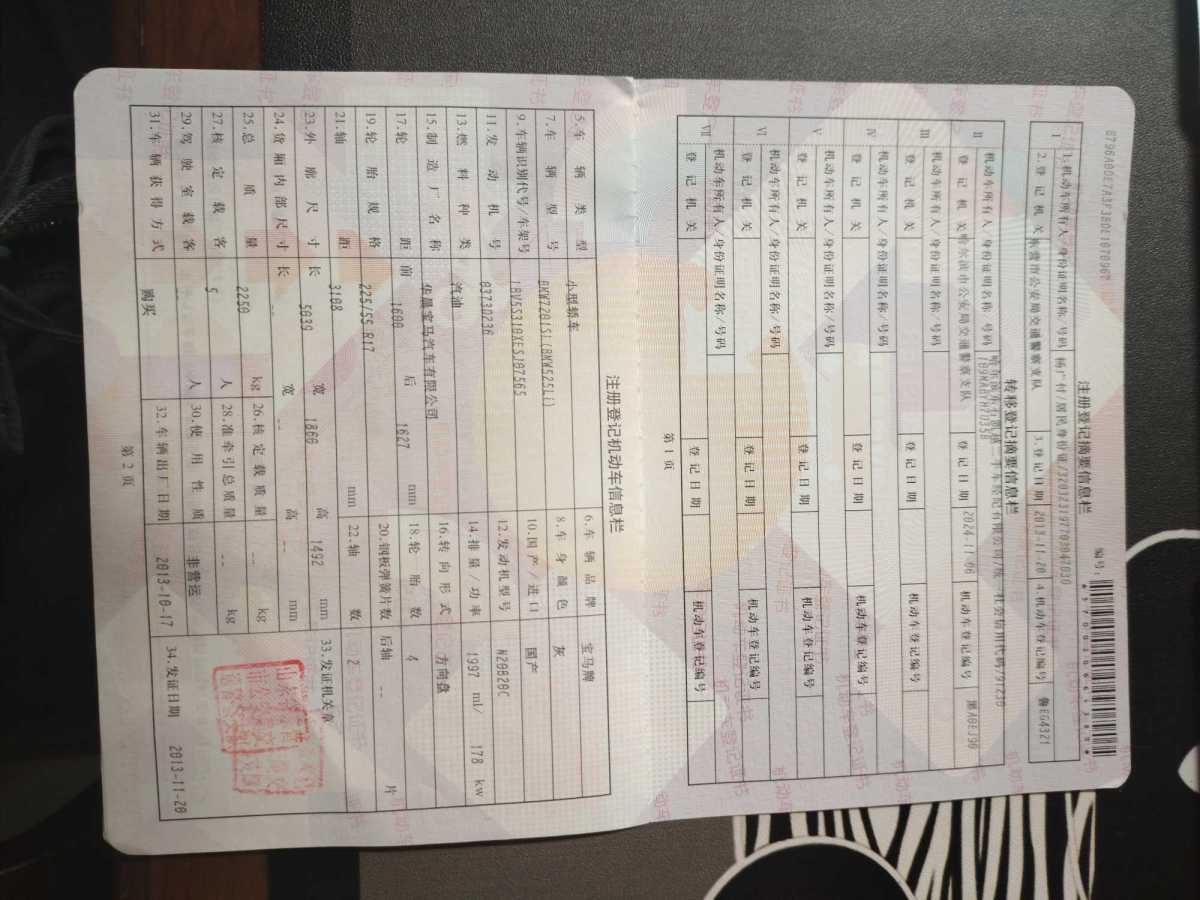 注册登记摘要信息栏
编号:
1.机动车所有人/身份证明名称/号码 杨广付/居民身份证/
2.登记机关 东营市公安局交通警察支队 3.登记日期 2013-11-20 4.机动车登记编号 鲁EG4321
转移登记摘要信息栏
II 机动车所有人/身份证明名称/号码
登记机关 哈尔滨市公安局交通警察支队 登记日期 2024-11-06 机动车登记编号 黑A0EJ90
III 机动车所有人/身份证明名称/号码
登记机关 登记日期 机动车登记编号
IV 机动车所有人/身份证明名称/号码
登记机关 登记日期 机动车登记编号
V 机动车所有人/身份证明名称/号码
登记机关 登记日期 机动车登记编号
VI 机动车所有人/身份证明名称/号码
登记机关 登记日期 机动车登记编号
VII 机动车所有人/身份证明名称/号码
登记机关 登记日期 机动车登记编号
第 1 页
注册登记机动车信息栏
5.车辆类型 小型轿车 6.车辆品牌 宝马牌
7.车辆型号 BMW7201SL(BMW525Li) 8.车身颜色 灰
9.车辆识别代号/车架号 10.国产/进口 国产
11.发动机号 03730236 12.发动机型号 N20B20C
13.燃料种类 汽油 14.排量/功率 1997 ml/ 178 kw
15.制造厂名称 华晨宝马汽车有限公司 16.转向形式 方向盘
17.轮距 前 1600 后 1627 mm 18.轮胎数 4
19.轮胎规格 225/55 R17 20.钢板弹簧片数 后轴 -- 片
21.轴距 3108 mm 22.轴数 2
23.外廓尺寸 长 5039 宽 1860 高 1492 mm 33.发证机关章
24.货厢内部尺寸 长 -- 宽 -- 高 -- mm
25.总质量 2250 kg 26.核定载质量 -- kg
27.核定载客 5 人 28.准牵引总质量 -- kg
29.驾驶室载客 -- 人 30.使用性质 非营运
31.车辆获得方式 购买 32.车辆出厂日期 2013-10-17 34.发证日期 2013-11-20
第 2 页